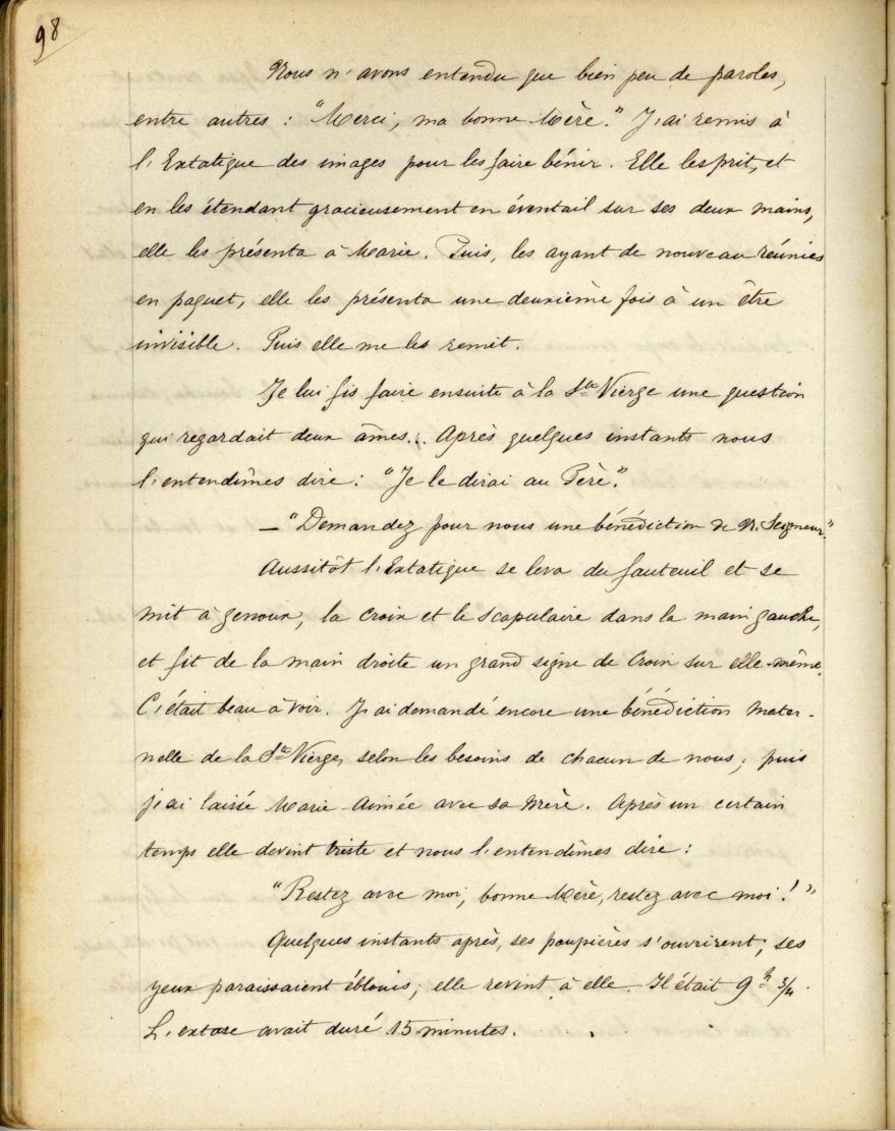 98
Nous n'avons entendu que bien peu de paroles,
entre autres : "Merci, ma bonne Mère." J'ai remis à
l'Extatique des images pour les faire bénir. Elle les prit, et
en les étendant gracieusement en éventail sur ses deux mains,
elle les présenta à Marie. Puis, les ayant de nouveau réunies
en paquet, elle les présenta une deuxième fois à un être
invisible. Puis elle me les remit.
Je lui fis faire ensuite à la Ste Vierge une question
qui regardait deux âmes... Après quelques instants nous
l'entendîmes dire : "Je le dirai au Père".
— "Demandez pour nous une bénédiction de N. Seigneur."
Aussitôt l'Extatique se leva du fauteuil et se
mit à genoux, la Croix et le Scapulaire dans la main gauche,
et fit de la main droite un grand signe de Croix sur elle-même.
C'était beau à voir. J'ai demandé encore une bénédiction mater-
nelle de la Ste Vierge, selon les besoins de chacun de nous ; puis
j'ai laissé Marie-Aimée avec sa Mère. Après un certain
temps elle devint triste et nous l'entendîmes dire :
"Restez avec moi, bonne Mère, restez avec moi ! "
Quelques instants après, ses paupières s'ouvrirent ; ses
yeux paraissaient éblouis ; elle revint à elle. Il était 9h 3/4.
L'extase avait duré 15 minutes.